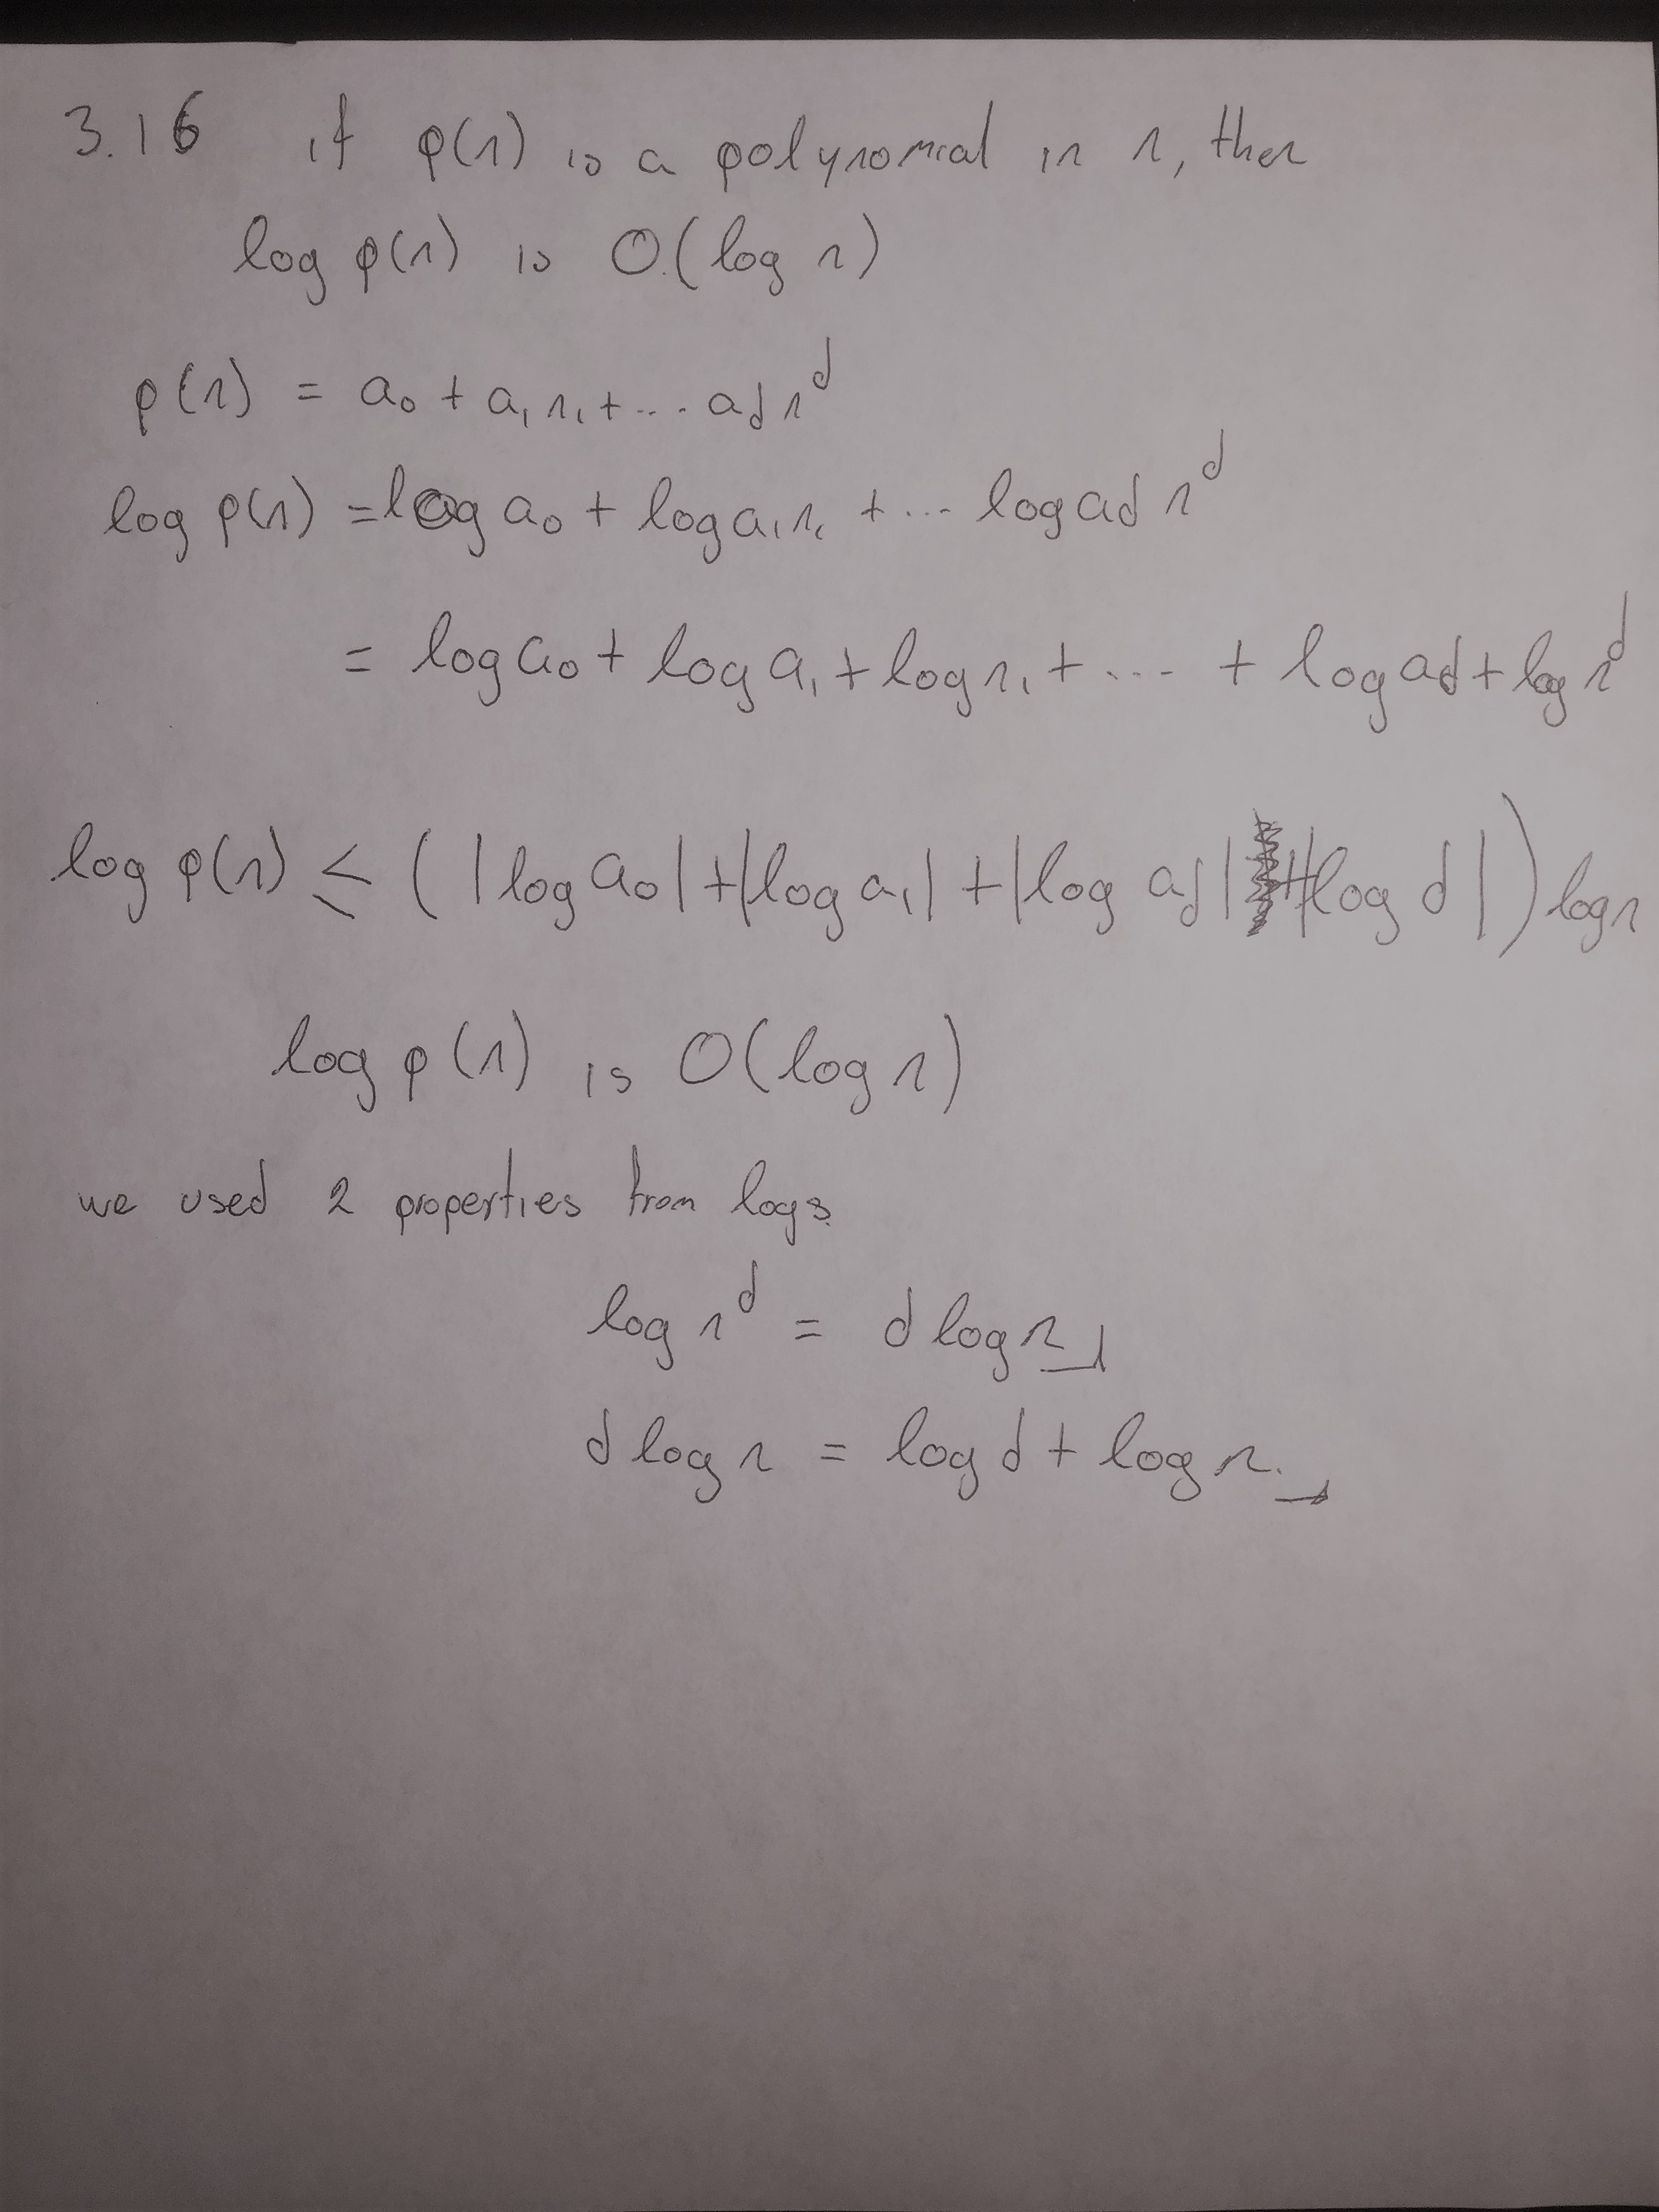 3.16 if p(n) is a polynomial in n, then
log p(n) is O(log n)
p(n) = a₀ + a₁n₁ + ... a_d n^d
log p(n) = log a₀ + log a₁n₁ + ... log a_d n^d
= log a₀ + log a₁ + log n₁ + ... + log a_d + log n^d
log p(n) ≤ (|log a₀| + |log a₁| + |log a_d| + |log d|) log n
log p(n) is O(log n)
we used 2 properties from logs.
log n^d = d log n
d log n = log d + log n.